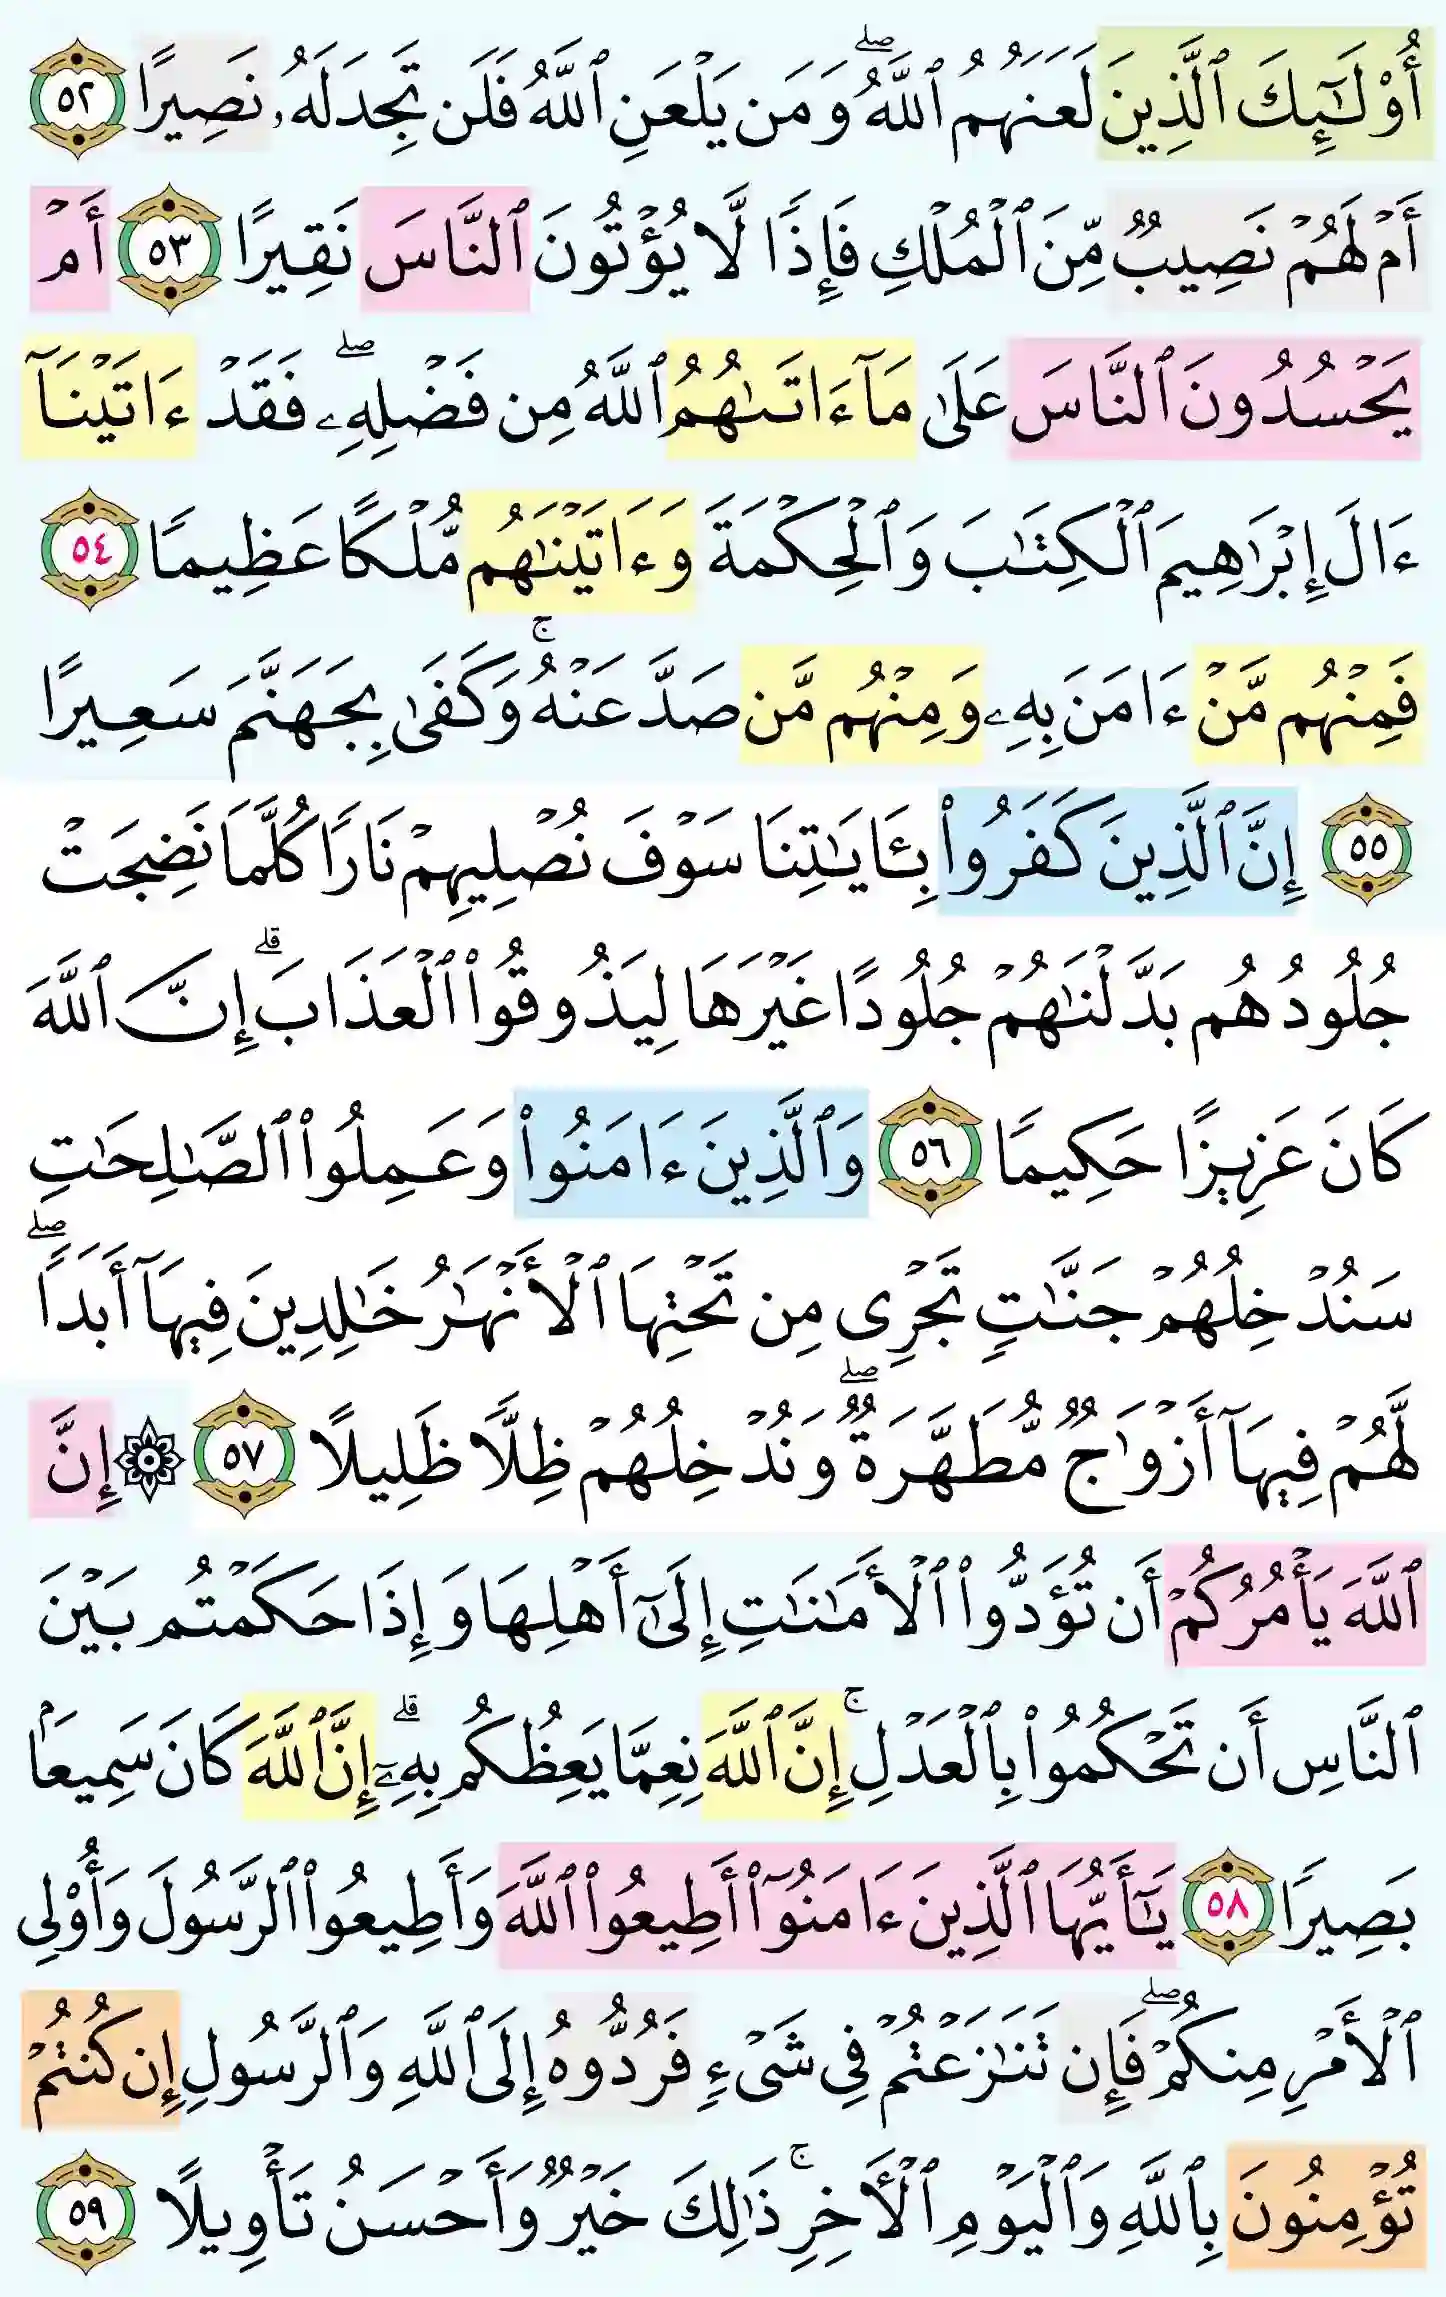 أُوْلَٰٓئِكَ ٱلَّذِينَ لَعَنَهُمُ ٱللَّهُۖ وَمَن يَلْعَنِ ٱللَّهُ فَلَن تَجِدَ لَهُۥ نَصِيرًا ٥٢
أَمْ لَهُمْ نَصِيبٌ مِّنَ ٱلْمُلْكِ فَإِذًا لَّا يُؤْتُونَ ٱلنَّاسَ نَقِيرًا ٥٣ أَمْ
يَحْسُدُونَ ٱلنَّاسَ عَلَىٰ مَآ ءَاتَىٰهُمُ ٱللَّهُ مِن فَضْلِهِۦۖ فَقَدْ ءَاتَيْنَآ
ءَالَ إِبْرَٰهِيمَ ٱلْكِتَٰبَ وَٱلْحِكْمَةَ وَءَاتَيْنَٰهُم مُّلْكًا عَظِيمًا ٥٤
فَمِنْهُم مَّنْ ءَامَنَ بِهِۦ وَمِنْهُم مَّن صَدَّ عَنْهُۚ وَكَفَىٰ بِجَهَنَّمَ سَعِيرًا
٥٥ إِنَّ ٱلَّذِينَ كَفَرُواْ بِـَٔايَٰتِنَا سَوْفَ نُصْلِيهِمْ نَارًا كُلَّمَا نَضِجَتْ
جُلُودُهُم بَدَّلْنَٰهُمْ جُلُودًا غَيْرَهَا لِيَذُوقُواْ ٱلْعَذَابَۗ إِنَّ ٱللَّهَ
كَانَ عَزِيزًا حَكِيمًا ٥٦ وَٱلَّذِينَ ءَامَنُواْ وَعَمِلُواْ ٱلصَّٰلِحَٰتِ
سَنُدْخِلُهُمْ جَنَّٰتٍ تَجْرِى مِن تَحْتِهَا ٱلْأَنْهَٰرُ خَٰلِدِينَ فِيهَآ أَبَدًاۖ
لَّهُمْ فِيهَآ أَزْوَٰجٌ مُّطَهَّرَةٌۖ وَنُدْخِلُهُمْ ظِلًّا ظَلِيلًا ٥٧ ۞ إِنَّ
ٱللَّهَ يَأْمُرُكُمْ أَن تُؤَدُّواْ ٱلْأَمَٰنَٰتِ إِلَىٰٓ أَهْلِهَا وَإِذَا حَكَمْتُم بَيْنَ
ٱلنَّاسِ أَن تَحْكُمُواْ بِٱلْعَدْلِۚ إِنَّ ٱللَّهَ نِعِمَّا يَعِظُكُم بِهِۦٓۗ إِنَّ ٱللَّهَ كَانَ سَمِيعَۢا
بَصِيرًا ٥٨ يَٰٓأَيُّهَا ٱلَّذِينَ ءَامَنُوٓاْ أَطِيعُواْ ٱللَّهَ وَأَطِيعُواْ ٱلرَّسُولَ وَأُوْلِى
ٱلْأَمْرِ مِنكُمْۖ فَإِن تَنَٰزَعْتُمْ فِى شَىْءٍ فَرُدُّوهُ إِلَى ٱللَّهِ وَٱلرَّسُولِ إِن كُنتُمْ
تُؤْمِنُونَ بِٱللَّهِ وَٱلْيَوْمِ ٱلْأَخِرِۚ ذَٰلِكَ خَيْرٌ وَأَحْسَنُ تَأْوِيلًا ٥٩